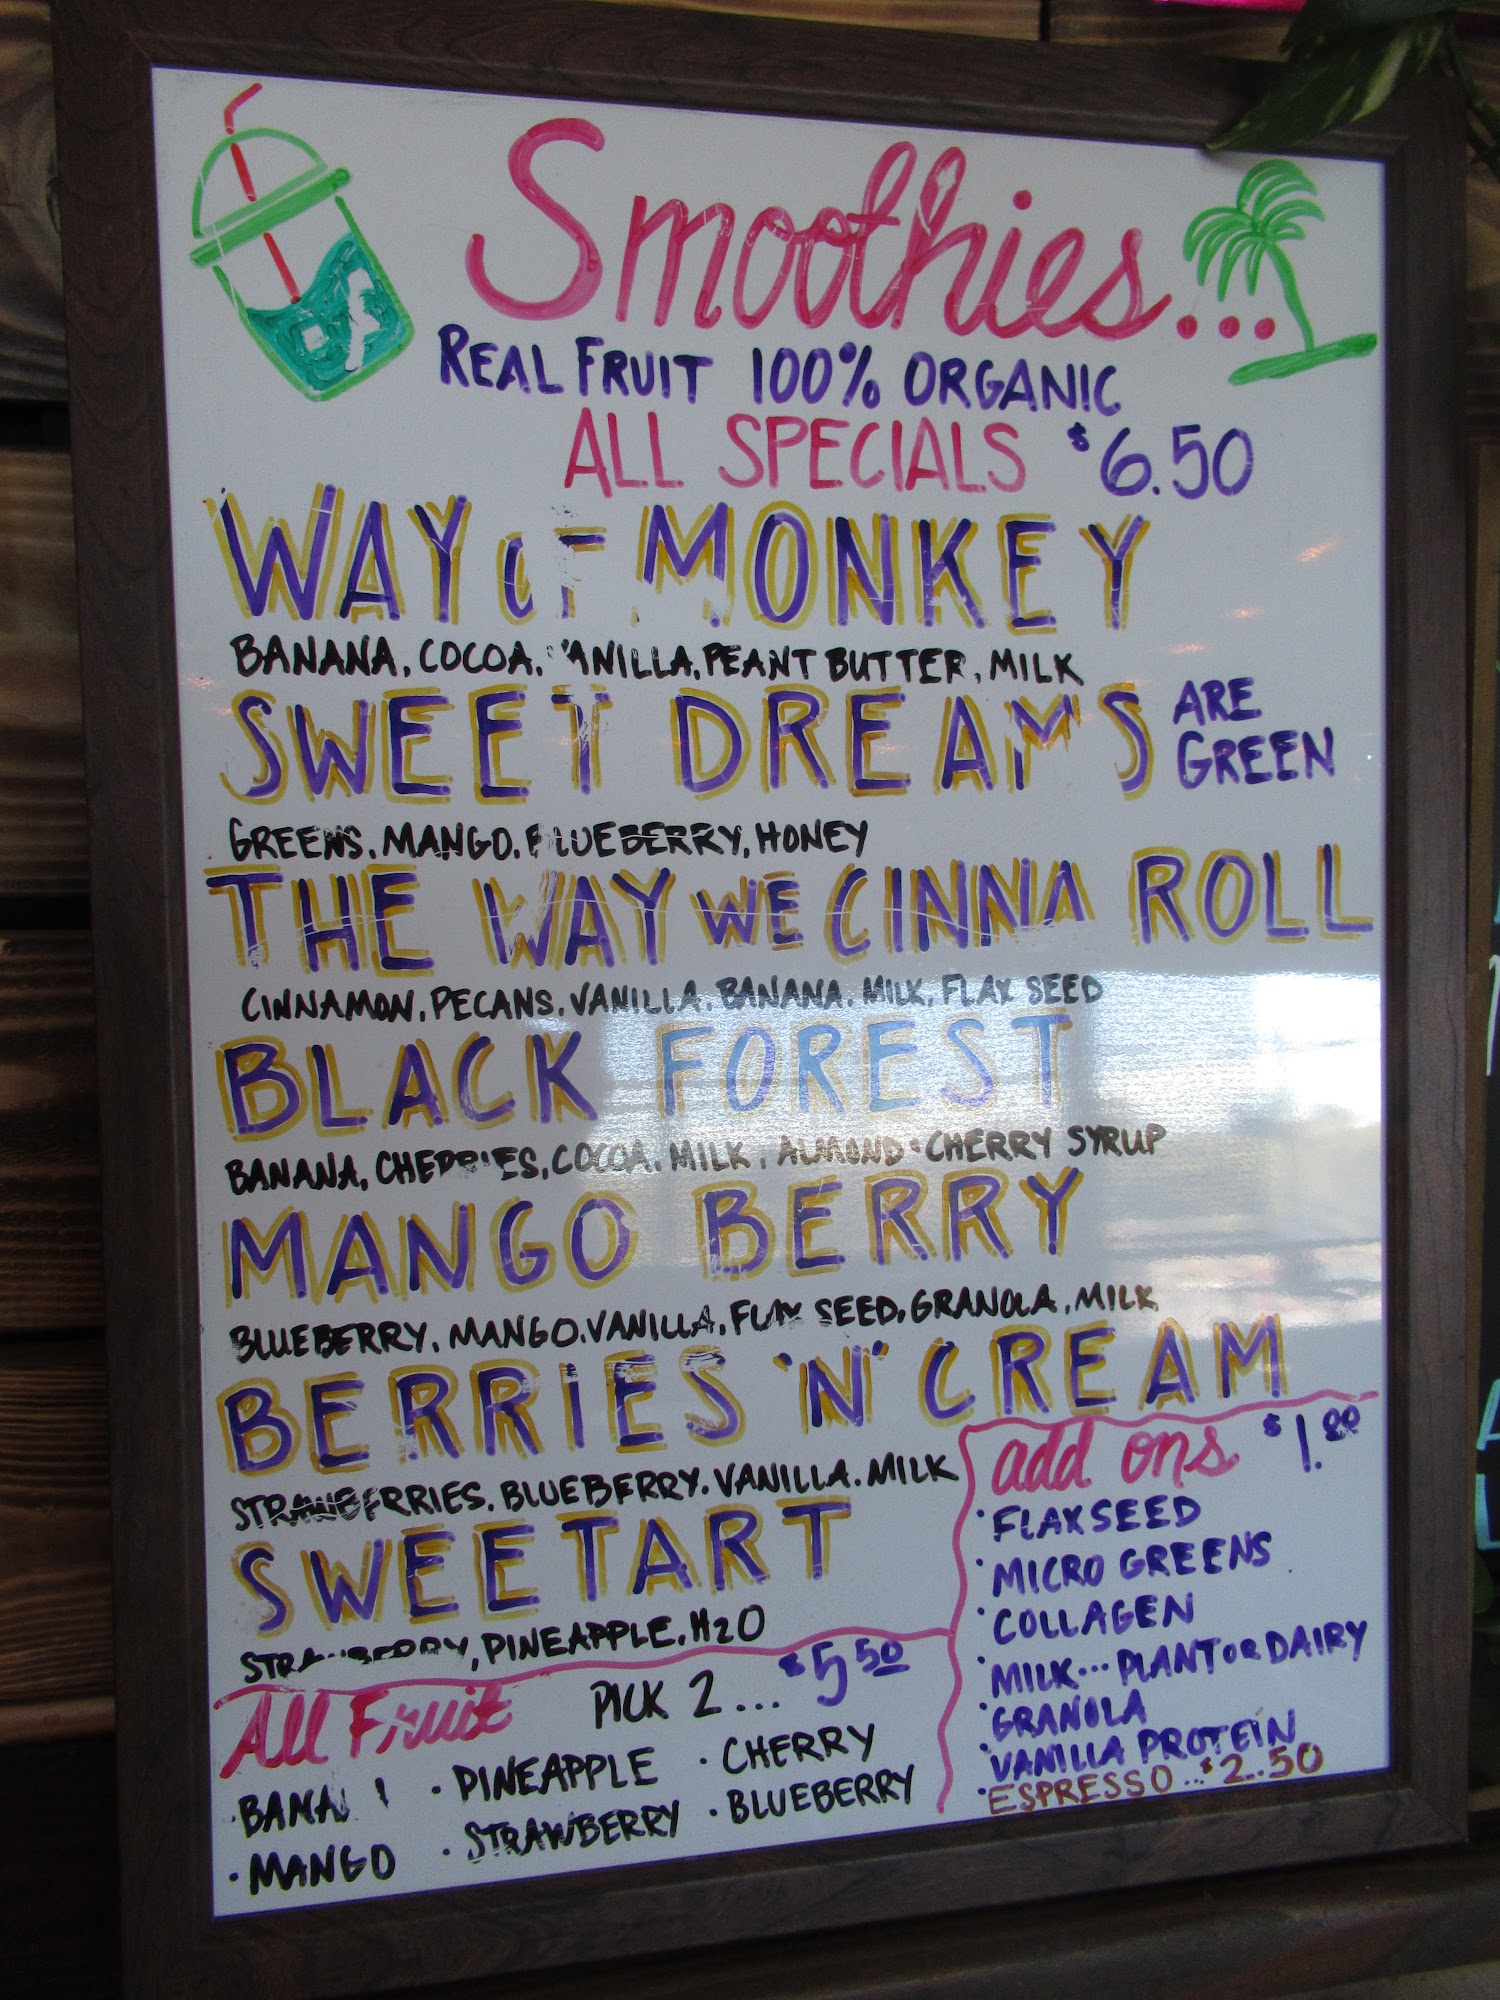 Smoothies...
REAL FRUIT 100% ORGANIC
ALL SPECIALS $6.50
WAY OF MONKEY
BANANA, COCOA, VANILLA, PEANT BUTTER, MILK
SWEET DREAMS ARE GREEN
GREENS, MANGO, BLUEBERRY, HONEY
THE WAY WE CINNA ROLL
CINNAMON, PECANS, VANILLA, BANANA, MILK, FLAX SEED
BLACK FOREST
BANANA, CHERRIES, COCOA, MILK, ALMOND · CHERRY SYRUP
MANGO BERRY
BLUEBERRY, MANGO, VANILLA, FLAX SEED, GRANOLA, MILK
BERRIES 'N' CREAM
STRAWBERRIES, BLUEBERRY, VANILLA, MILK
SWEETART
STRAWBERRY, PINEAPPLE, H2O
add ons $1.00
· FLAXSEED
· MICRO GREENS
· COLLAGEN
· MILK... PLANT OR DAIRY
· GRANOLA
· VANILLA PROTEIN
· ESPRESSO...$2.50
All Fruit PICK 2... $5.50
· BANANA · PINEAPPLE · CHERRY
· MANGO · STRAWBERRY · BLUEBERRY